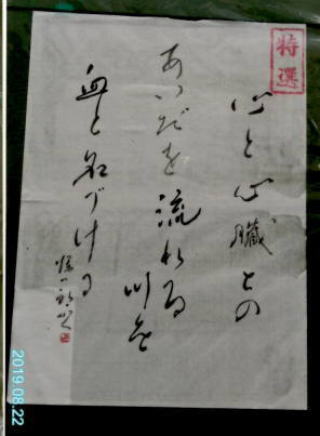 特選
心と心臓との
あいだを流れる
川を
血と名づける
2019.08.22